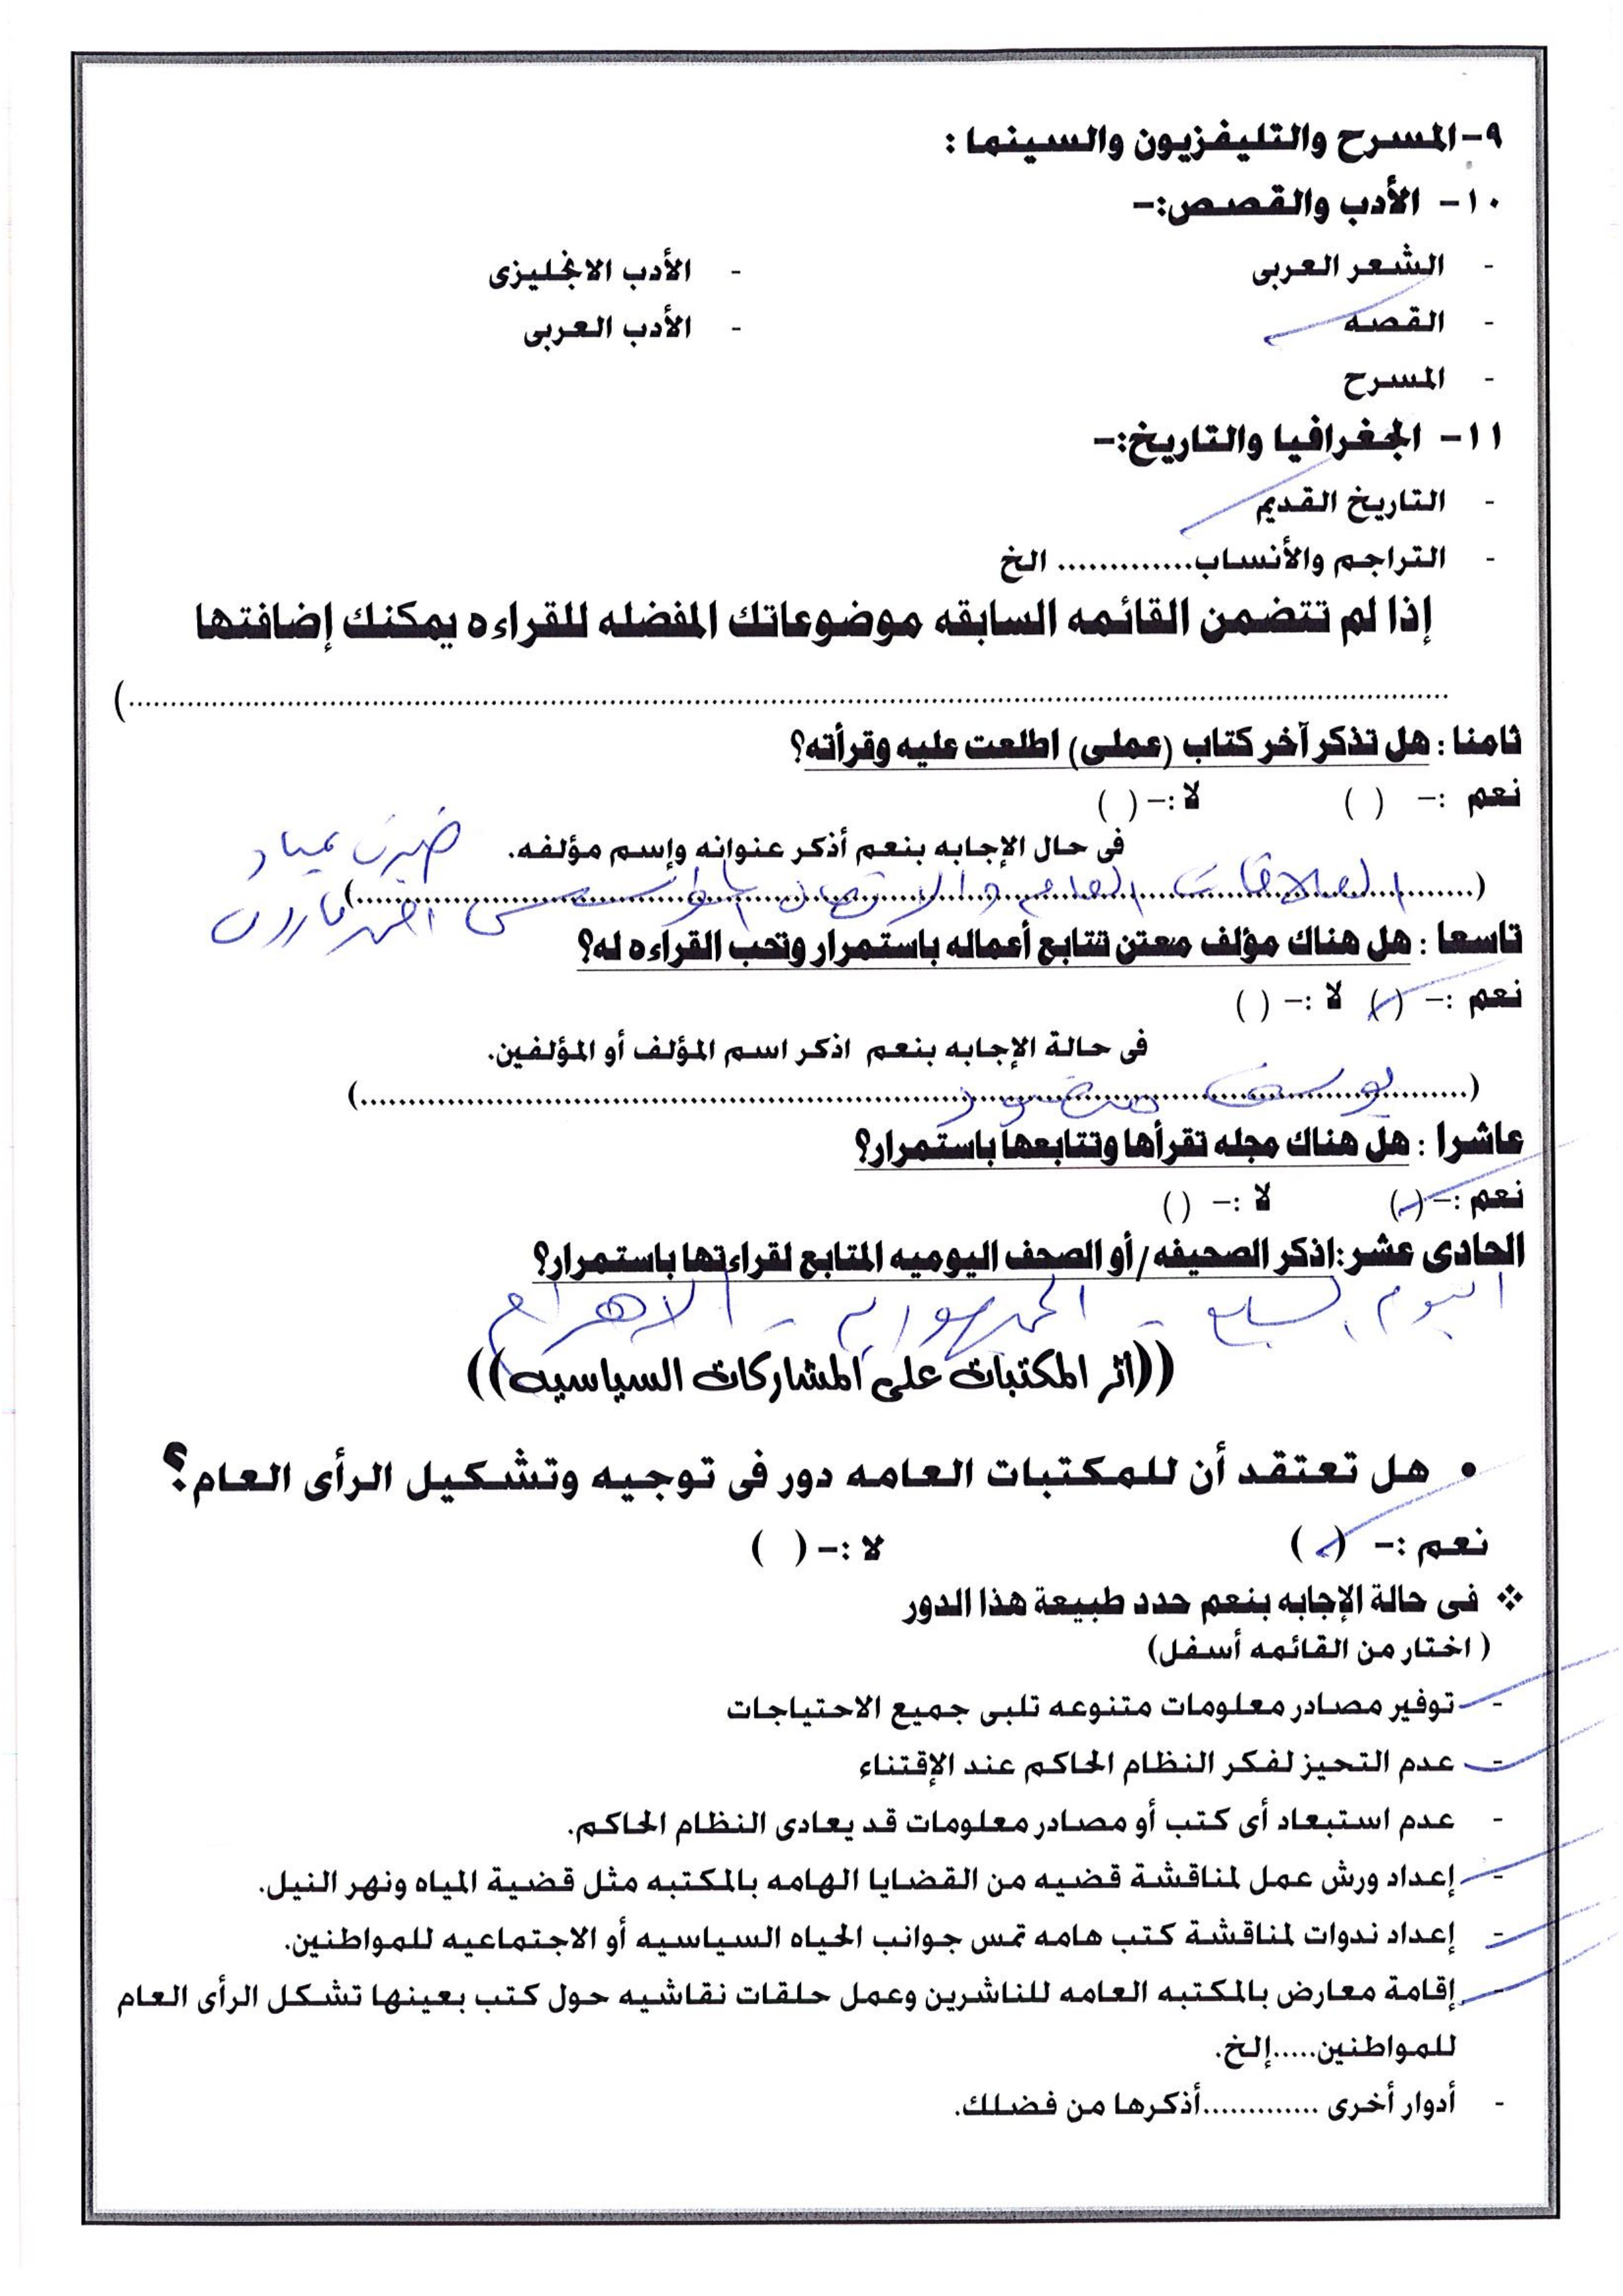 ٩-المسرح والتليفزيون والسينما :
١٠- الأدب والقصص:-
- الشعر العربى - الأدب الانجليزى
- القصه - الأدب العربى
- المسرح
١١- الجغرافيا والتاريخ:-
- التاريخ القديم
- التراجم والأنساب............. الخ
إذا لم تتضمن القائمه السابقه موضوعاتك المفضله للقراءه يمكنك إضافتها
(...............................................................
ثامنا : هل تذكر آخر كتاب (عملى) اطلعت عليه وقرأته؟
نعم :- ( ) لا :- ( )
فى حال الإجابه بنعم أذكر عنوانه وإسم مؤلفه.
(العلاقات العامه والاتصال
تاسعا : هل هناك مؤلف معتن تتابع أعماله باستمرار وتحب القراءه له؟
نعم :- (✓) لا :- ( )
فى حالة الإجابه بنعم اذكر اسم المؤلف أو المؤلفين.
(يوسف)
عاشرا : هل هناك مجله تقرأها وتتابعها باستمرار؟
نعم :- (✓) لا :- ( )
الحادى عشر:اذكر الصحيفه/أو الصحف اليوميه المتابع لقراءتها باستمرار؟
اليوم السابع - الجمهوريه - الاهرام
((أثر المكتبات على المشاركات السياسيه))
• هل تعتقد أن للمكتبات العامه دور فى توجيه وتشكيل الرأى العام؟
نعم :- (✓) لا :- ( )
❖ فى حالة الإجابه بنعم حدد طبيعة هذا الدور
( اختار من القائمه أسفل)
- توفير مصادر معلومات متنوعه تلبى جميع الاحتياجات
- عدم التحيز لفكر النظام الحاكم عند الإقتناء
- عدم استبعاد أى كتب أو مصادر معلومات قد يعادى النظام الحاكم.
- إعداد ورش عمل لمناقشة قضيه من القضايا الهامه بالمكتبه مثل قضية المياه ونهر النيل.
- إعداد ندوات لمناقشة كتب هامه تمس جوانب الحياه السياسيه أو الاجتماعيه للمواطنين.
- إقامة معارض بالمكتبه العامه للناشرين وعمل حلقات نقاشيه حول كتب بعينها تشكل الرأى العام
للمواطنين.....إلخ.
- أدوار أخرى .............أذكرها من فضلك.